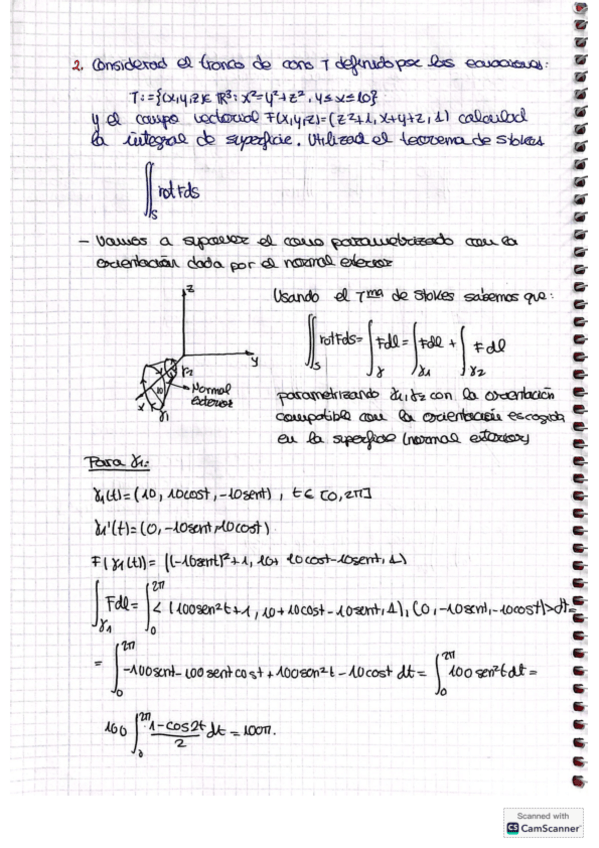 2. Considerad el tronco de cono T definido por las ecuaciones:
T:={(x,y,z)∈ R³: x²=y²+z², 4≤x≤10}
y el campo vectorial F(x,y,z)=(z²+1, x+y+z, 1) calculad
la integral de superficie. Utilizad el teorema de Stokes
∬_S rotFds
- Vamos a suponer el cono parametrizado con la
orientación dada por el normal exterior
z
y
x
10
γ1
γ2
Normal
exterior
Usando el Tma de Stokes sabemos que:
∬_S rotFds = ∫_γ Fdl = ∫_γ1 Fdl + ∫_γ2 Fdl
parametrizando γ1,γ2 con la orientación
compatible con la orientación escogida
en la superficie (normal exterior)
Para γ1:
γ1(t)=(10, 10cost, -10sent), t∈[0,2π]
γ1'(t)=(0,-10sent,-10cost)
F(γ1(t))= ((-10sent)²+1, 10+10cost-10sent, 1)
∫_γ1 Fdl = ∫_0^2π <(100sen²t+1, 10+10cost-10sent, 1), (0,-10sent,-10cost)>dt=
= ∫_0^2π -100sent-100sentcost+100sen²t-10cost dt = ∫_0^2π 100sen²tdt =
100 ∫_0^2π (1-cos2t)/2 dt = 100π.
Scanned with
CS CamScanner